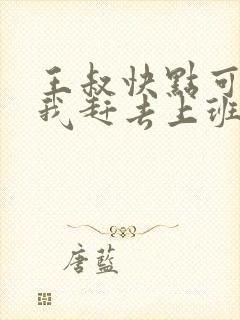 王叔快點可
我赶去上班
唐藍